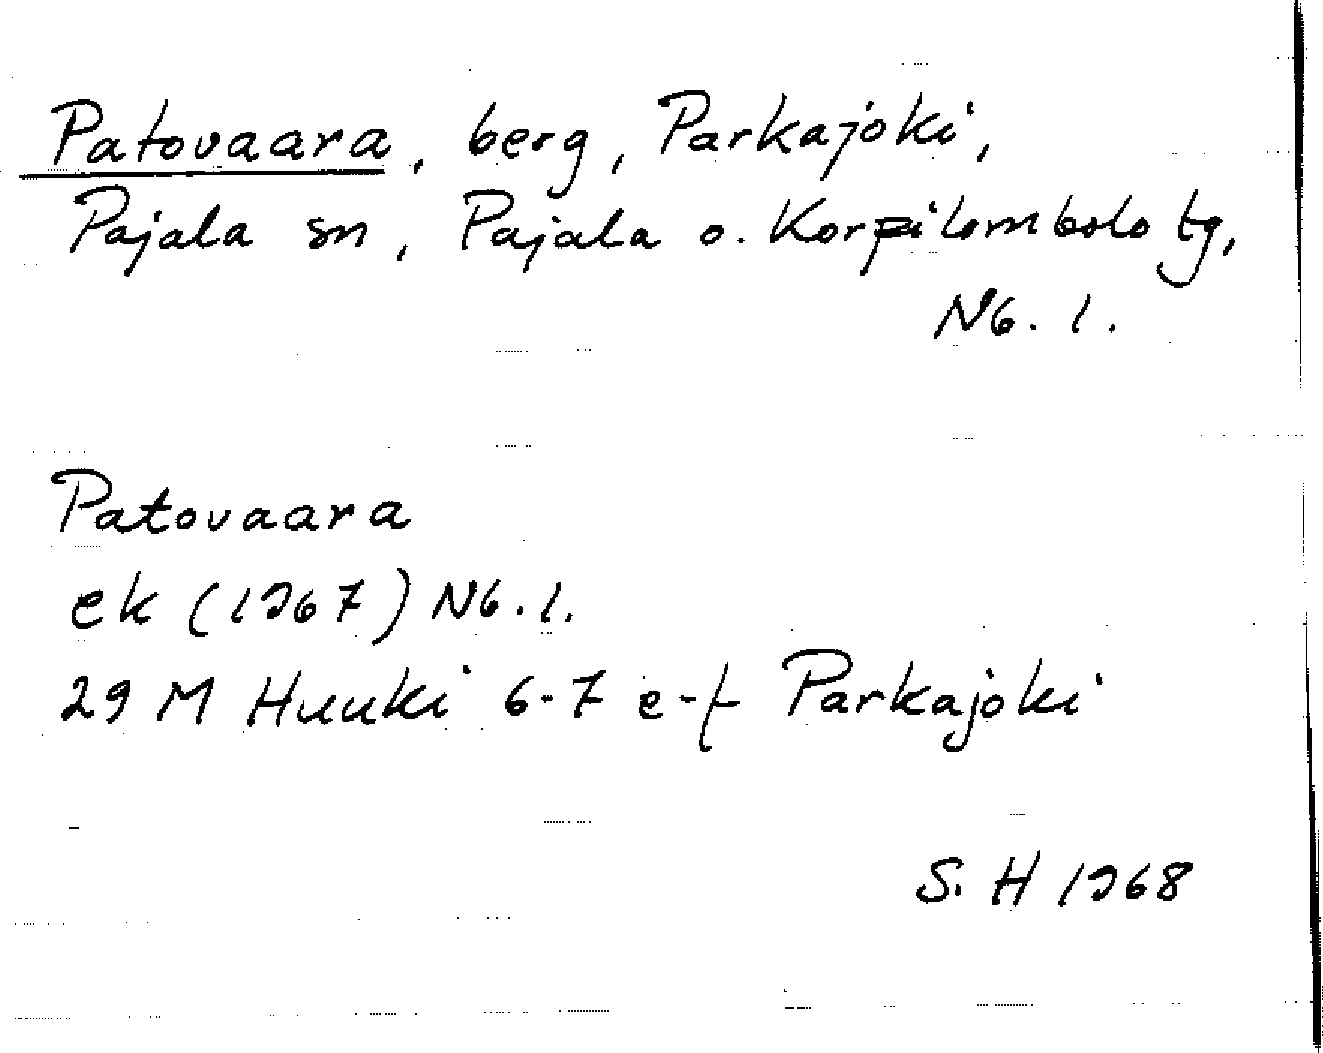 Patovaara, berg, Parkajoki,
Pajala sn, Pajala o. Korpilombolo tg,
Nb. l.
Patovaara
ek (1967) Nb. l.
29 M Huuki 6-7 e-f Parkajoki
S. H 1968